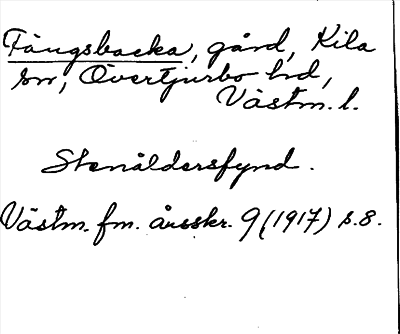 Tångsbacka, gård, Kila
sn, Övertjurbo hd,
Västm. l.
Stenåldersfynd.
Västm. fm. årsskr. 9 (1917) s. 8.